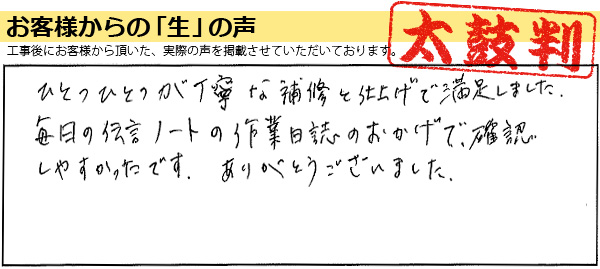 お客様からの「生」の声
太鼓判
工事後にお客様から頂いた、実際の声を掲載させていただいております。
ひとつひとつが丁寧な補修と仕上げで満足しました.
毎日の伝言ノートの作業日誌のおかげで、確認
しやすかったです. ありがとうございました.